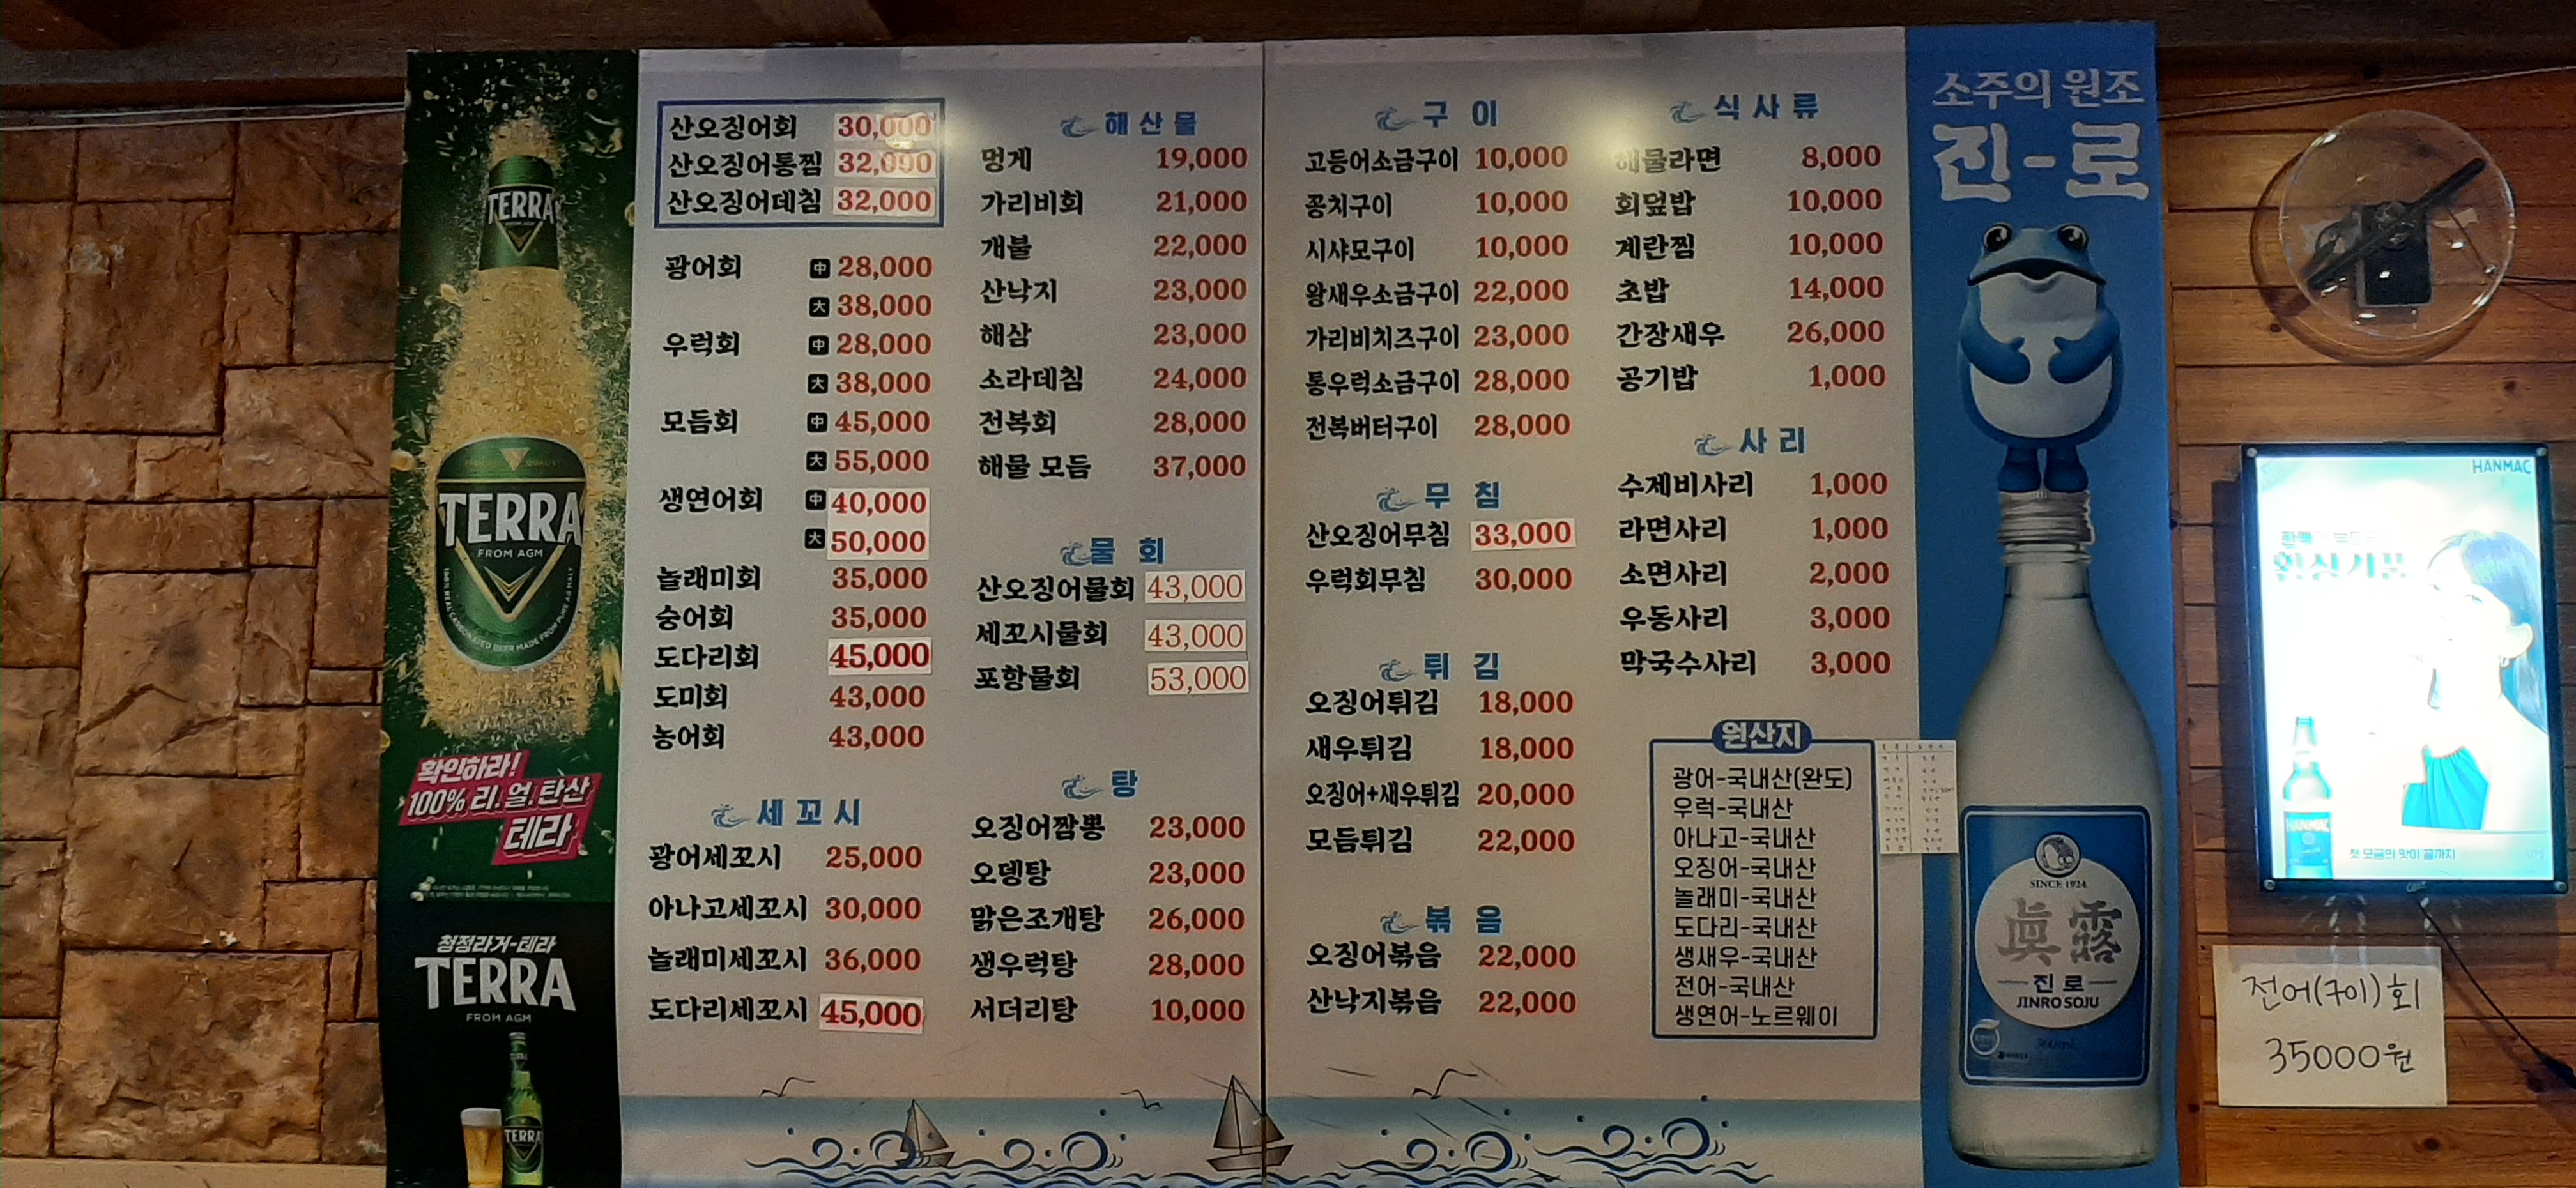 TERRA
TERRA
FROM AGM
확인하라!
100% 리.얼.탄산
테라
청정라거-테라
TERRA
FROM AGM
TERRA
산오징어회 30,000
산오징어통찜 32,000
산오징어데침 32,000
광어회 中 28,000
大 38,000
우럭회 中 28,000
大 38,000
모듬회 中 45,000
大 55,000
생연어회 中 40,000
大 50,000
놀래미회 35,000
숭어회 35,000
도다리회 45,000
도미회 43,000
농어회 43,000
세꼬시
광어세꼬시 25,000
아나고세꼬시 30,000
놀래미세꼬시 36,000
도다리세꼬시 45,000
해산물
멍게 19,000
가리비회 21,000
개불 22,000
산낙지 23,000
해삼 23,000
소라데침 24,000
전복회 28,000
해물 모듬 37,000
물회
산오징어물회 43,000
세꼬시물회 43,000
포항물회 53,000
탕
오징어짬뽕 23,000
오뎅탕 23,000
맑은조개탕 26,000
생우럭탕 28,000
서더리탕 10,000
구이
고등어소금구이 10,000
꽁치구이 10,000
시샤모구이 10,000
왕새우소금구이 22,000
가리비치즈구이 23,000
통우럭소금구이 28,000
전복버터구이 28,000
무침
산오징어무침 33,000
우럭회무침 30,000
튀김
오징어튀김 18,000
새우튀김 18,000
오징어+새우튀김 20,000
모듬튀김 22,000
볶음
오징어볶음 22,000
산낙지볶음 22,000
식사류
해물라면 8,000
회덮밥 10,000
계란찜 10,000
초밥 14,000
간장새우 26,000
공기밥 1,000
사리
수제비사리 1,000
라면사리 1,000
소면사리 2,000
우동사리 3,000
막국수사리 3,000
원산지
광어-국내산(완도)
우럭-국내산
아나고-국내산
오징어-국내산
놀래미-국내산
도다리-국내산
생새우-국내산
전어-국내산
생연어-노르웨이
소주의 원조
진-로
SINCE 1924
眞露
진로
JINRO SOJU
HANMAC
HANMAC
첫 모금의 맛이 끝까지
전어(구이)회
35000원